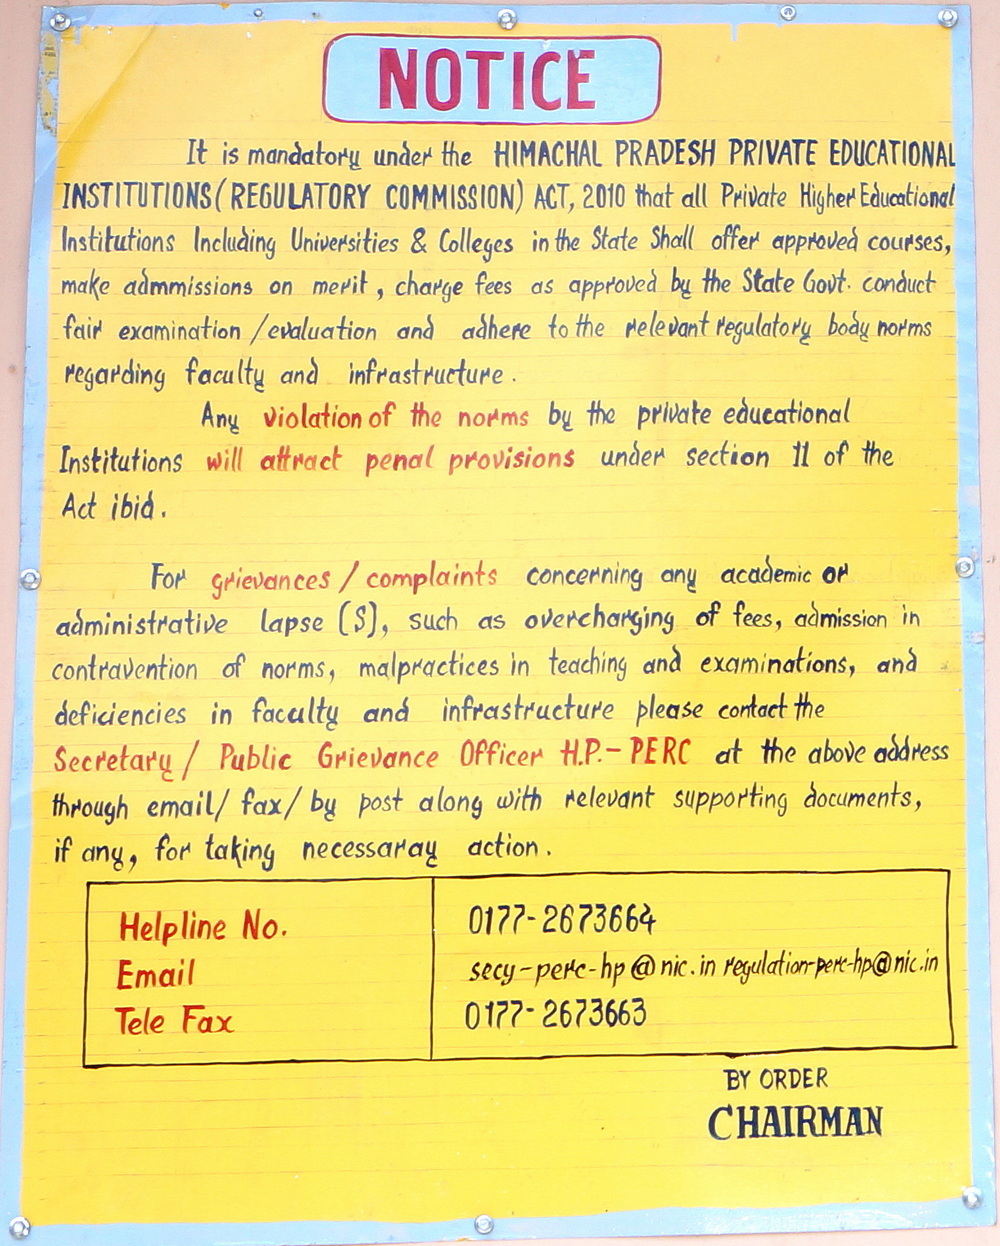 NOTICE
It is mandatory under the HIMACHAL PRADESH PRIVATE EDUCATIONAL
INSTITUTIONS (REGULATORY COMMISSION) ACT, 2010 that all Private Higher Educational
Institutions Including Universities & Colleges in the State Shall offer approved courses,
make admmissions on merit, charge fees as approved by the State Govt. conduct
fair examination /evaluation and adhere to the relevant regulatory body norms
regarding faculty and infrastructure.
Any violation of the norms by the private educational
Institutions will attract penal provisions under section 11 of the
Act ibid.
For grievances / complaints concerning any academic or
administrative lapse [S], such as overcharging of fees, admission in
contravention of norms, malpractices in teaching and examinations, and
deficiencies in faculty and infrastructure please contact the
Secretary / Public Grievance Officer H.P.- PERC at the above address
through email/ fax/ by post along with relevant supporting documents,
if any, for taking necessaray action.
Helpline No. 0177- 2673664
Email secy-perc-hp@nic.in regulation-perc-hp@nic.in
Tele Fax 0177- 2673663
BY ORDER
CHAIRMAN